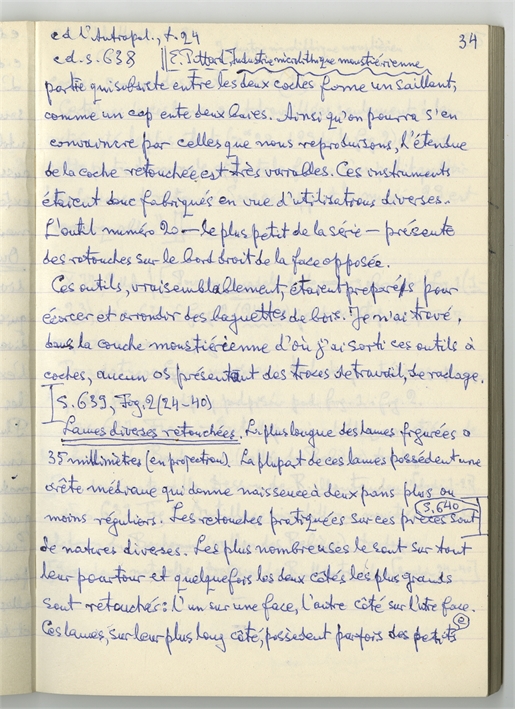 cd l'Antropol., t.24
34
cd.s.638 E. Pittard, Industrie microlithique moustérienne
partie qui subsiste entre les deux coches forme un saillant,
comme un cap ente deux baies. Ainsi qu'on pourra s'en
convaincre par celles que nous reproduisons, l'étendue
de la coche retouchée est très variables. Ces instruments
étaient donc fabriqués en vue d'utilisations diverses.
L'outil numéro 20 — le plus petit de la série — présente
des retouches sur le bord droit de la face opposée.
Ces outils, vraisemblablement, étaient préparés pour
écorcer et arrondir des baguettes de bois. Je n'ai trové,
dans la couche moustiérienne d'où j'ai sorti ces outils à
coches, aucun os présentant des traces de travail, de raclage.
S.639, Fig.2 (24-40)
Lames diverses retouchées. La plus longue des lames figurées a
35 millimètres (en projection). La plupart de ces lames possèdent une
arête médiane qui donne naissence à deux pans plus ou
S.640
moins réguliers. Les retouches pratiquées sur ces pièces sont
de natures diverses. Les plus nombreuses le sont sur tout
leur pourtour et quelquefois les deux côtés les plus grands
sont retouchés: l'un sur une face, l'autre côté sur l'autre face.
Ces lames, sur leur plus long côté, possèdent parfois des petits